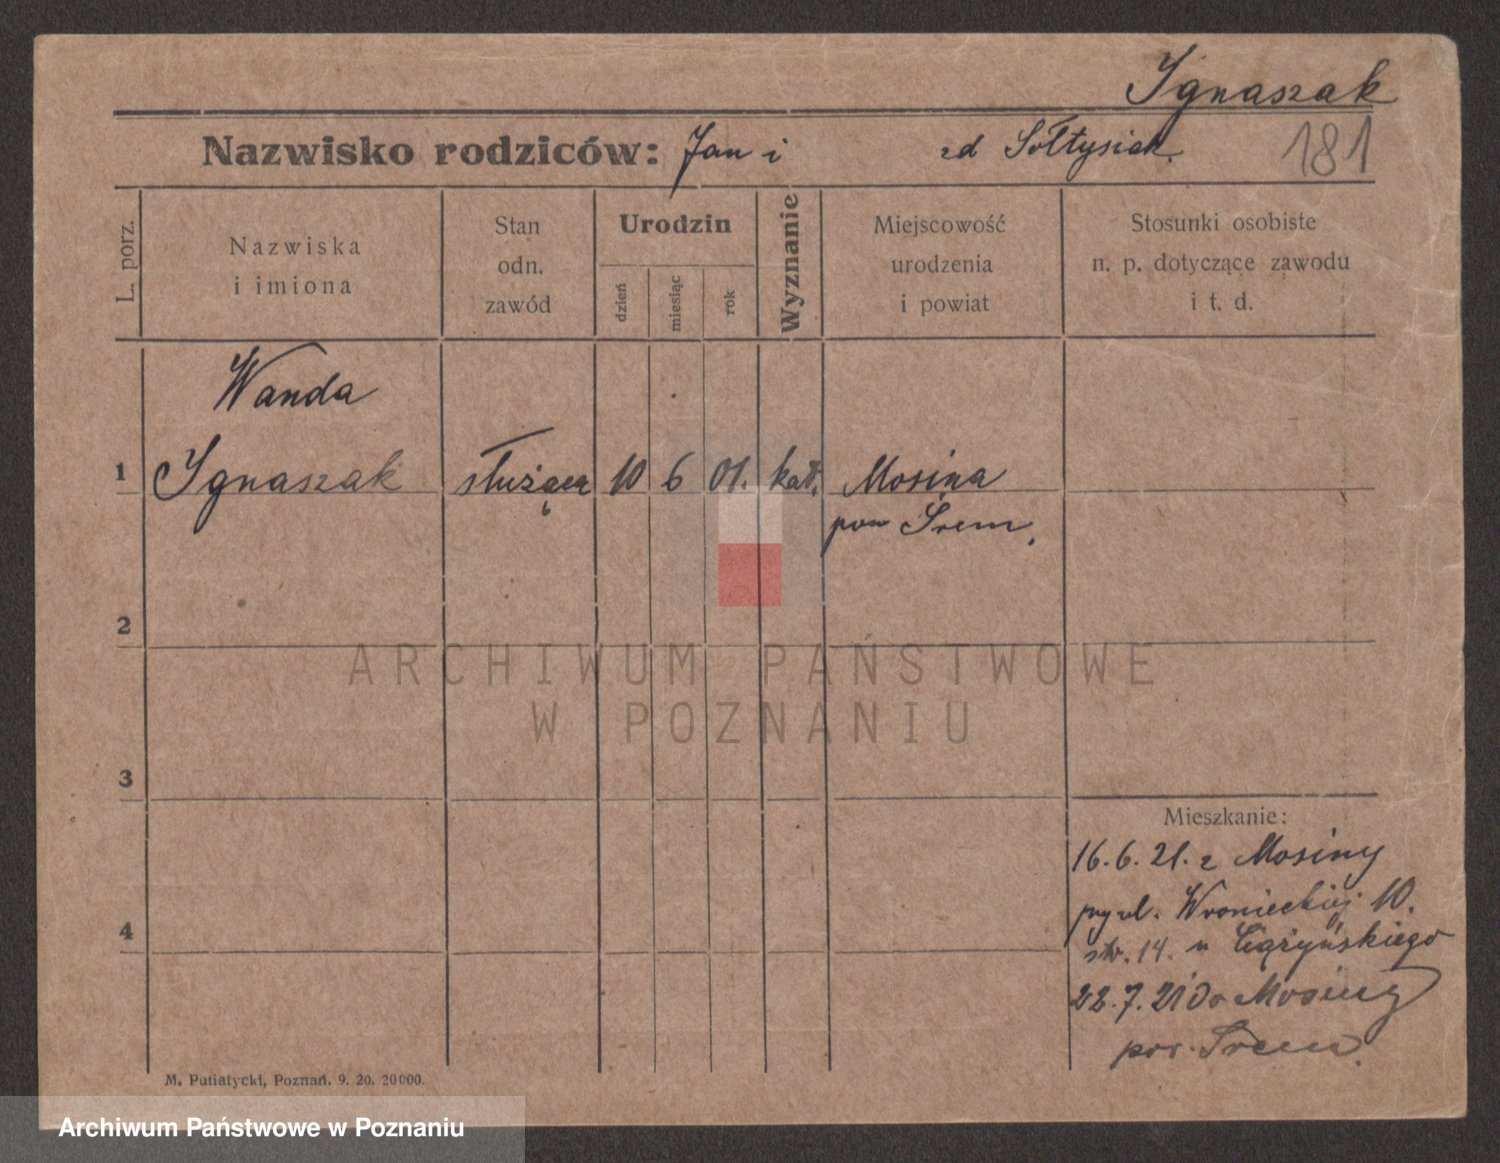 Ignaszak
Nazwisko rodziców: Jan i zd Sołtysiak. 181
L. porz.
Nazwiska
i imiona
Stan
odn.
zawód
Urodzin
dzień
miesiąc
rok
Wyznanie
Miejscowość
urodzenia
i powiat
Stosunki osobiste
n. p. dotyczące zawodu
i t. d.
Wanda
1 Ignaszak służąca 10 6 01. kat. Mosina
pow Śrem.
2
ARCHIWUM PAŃSTWOWE
W POZNANIU
3
Mieszkanie:
16.6.21. z Mosiny
przy ul. Wronieckiej 10.
4
str. 14. u Ciążyńskiego
22.7.21 do Mosiny
pow. Śrem.
M. Putiatycki, Poznań. 9. 20. 20000.
Archiwum Państwowe w Poznaniu